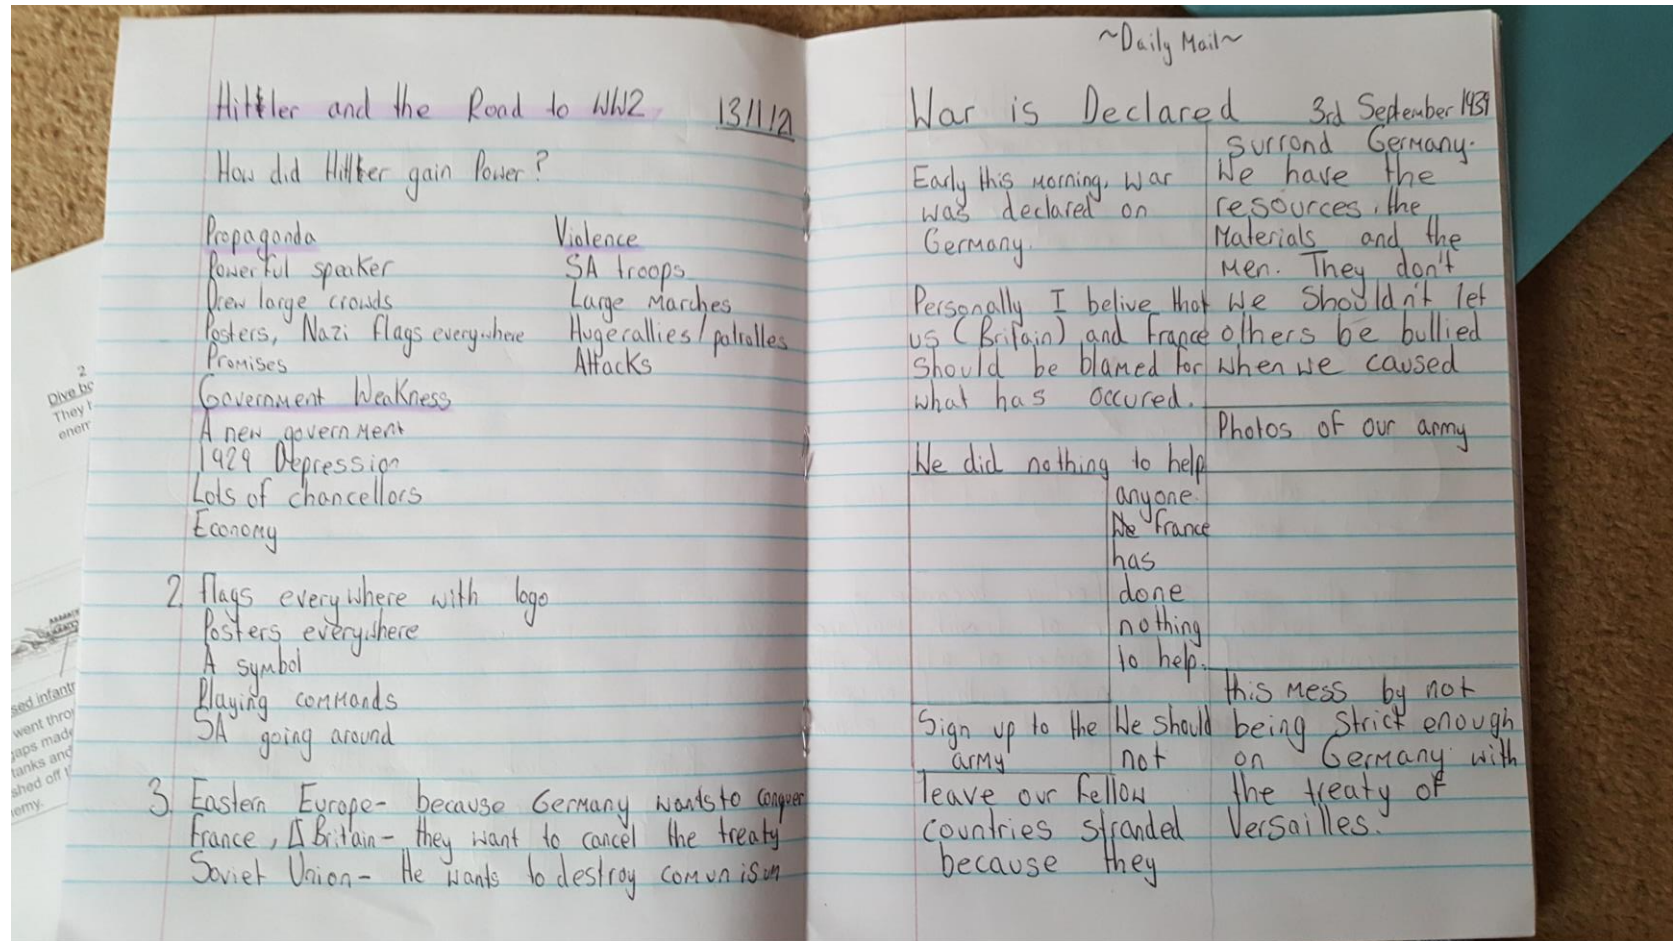 Hitler and the Road to WW2
13/1/12
How did Hitler gain Power?
Propaganda
Powerful speaker
Drew large crowds
Posters, Nazi flags everywhere
Promises
Violence
SA troops
Large Marches
Huge rallies/patrolles
Attacks
Government Weakness
A new government
1929 Depression
Lots of chancellors
Economy
2. flags everywhere with logo
Posters everywhere
A symbol
Playing commands
SA going around
3. Eastern Europe- because Germany wants to conquer
France, Britain - they want to cancel the treaty
Soviet Union - He wants to destroy comunism
~Daily Mail~
War is Declared
3rd September 1939
Early this morning, war
was declared on
Germany.
Personally I belive that
us (Britain) and France
should be blamed for
what has occured.
We did nothing to help
anyone.
France
has
done
nothing
to help.
Sign up to the
army
We should
not
leave our fellow
countries stranded
because they
surrond Germany.
We have the
resources, the
Materials and the
Men. They don't
We Shouldn't let
others be bullied
when we caused
Photos of our army
this mess by not
being strict enough
on Germany with
the treaty of
Versailles.
2
Dive bo
They h
enem
sed infantr
went throu
gaps made
tanks and
shed off t
emy.